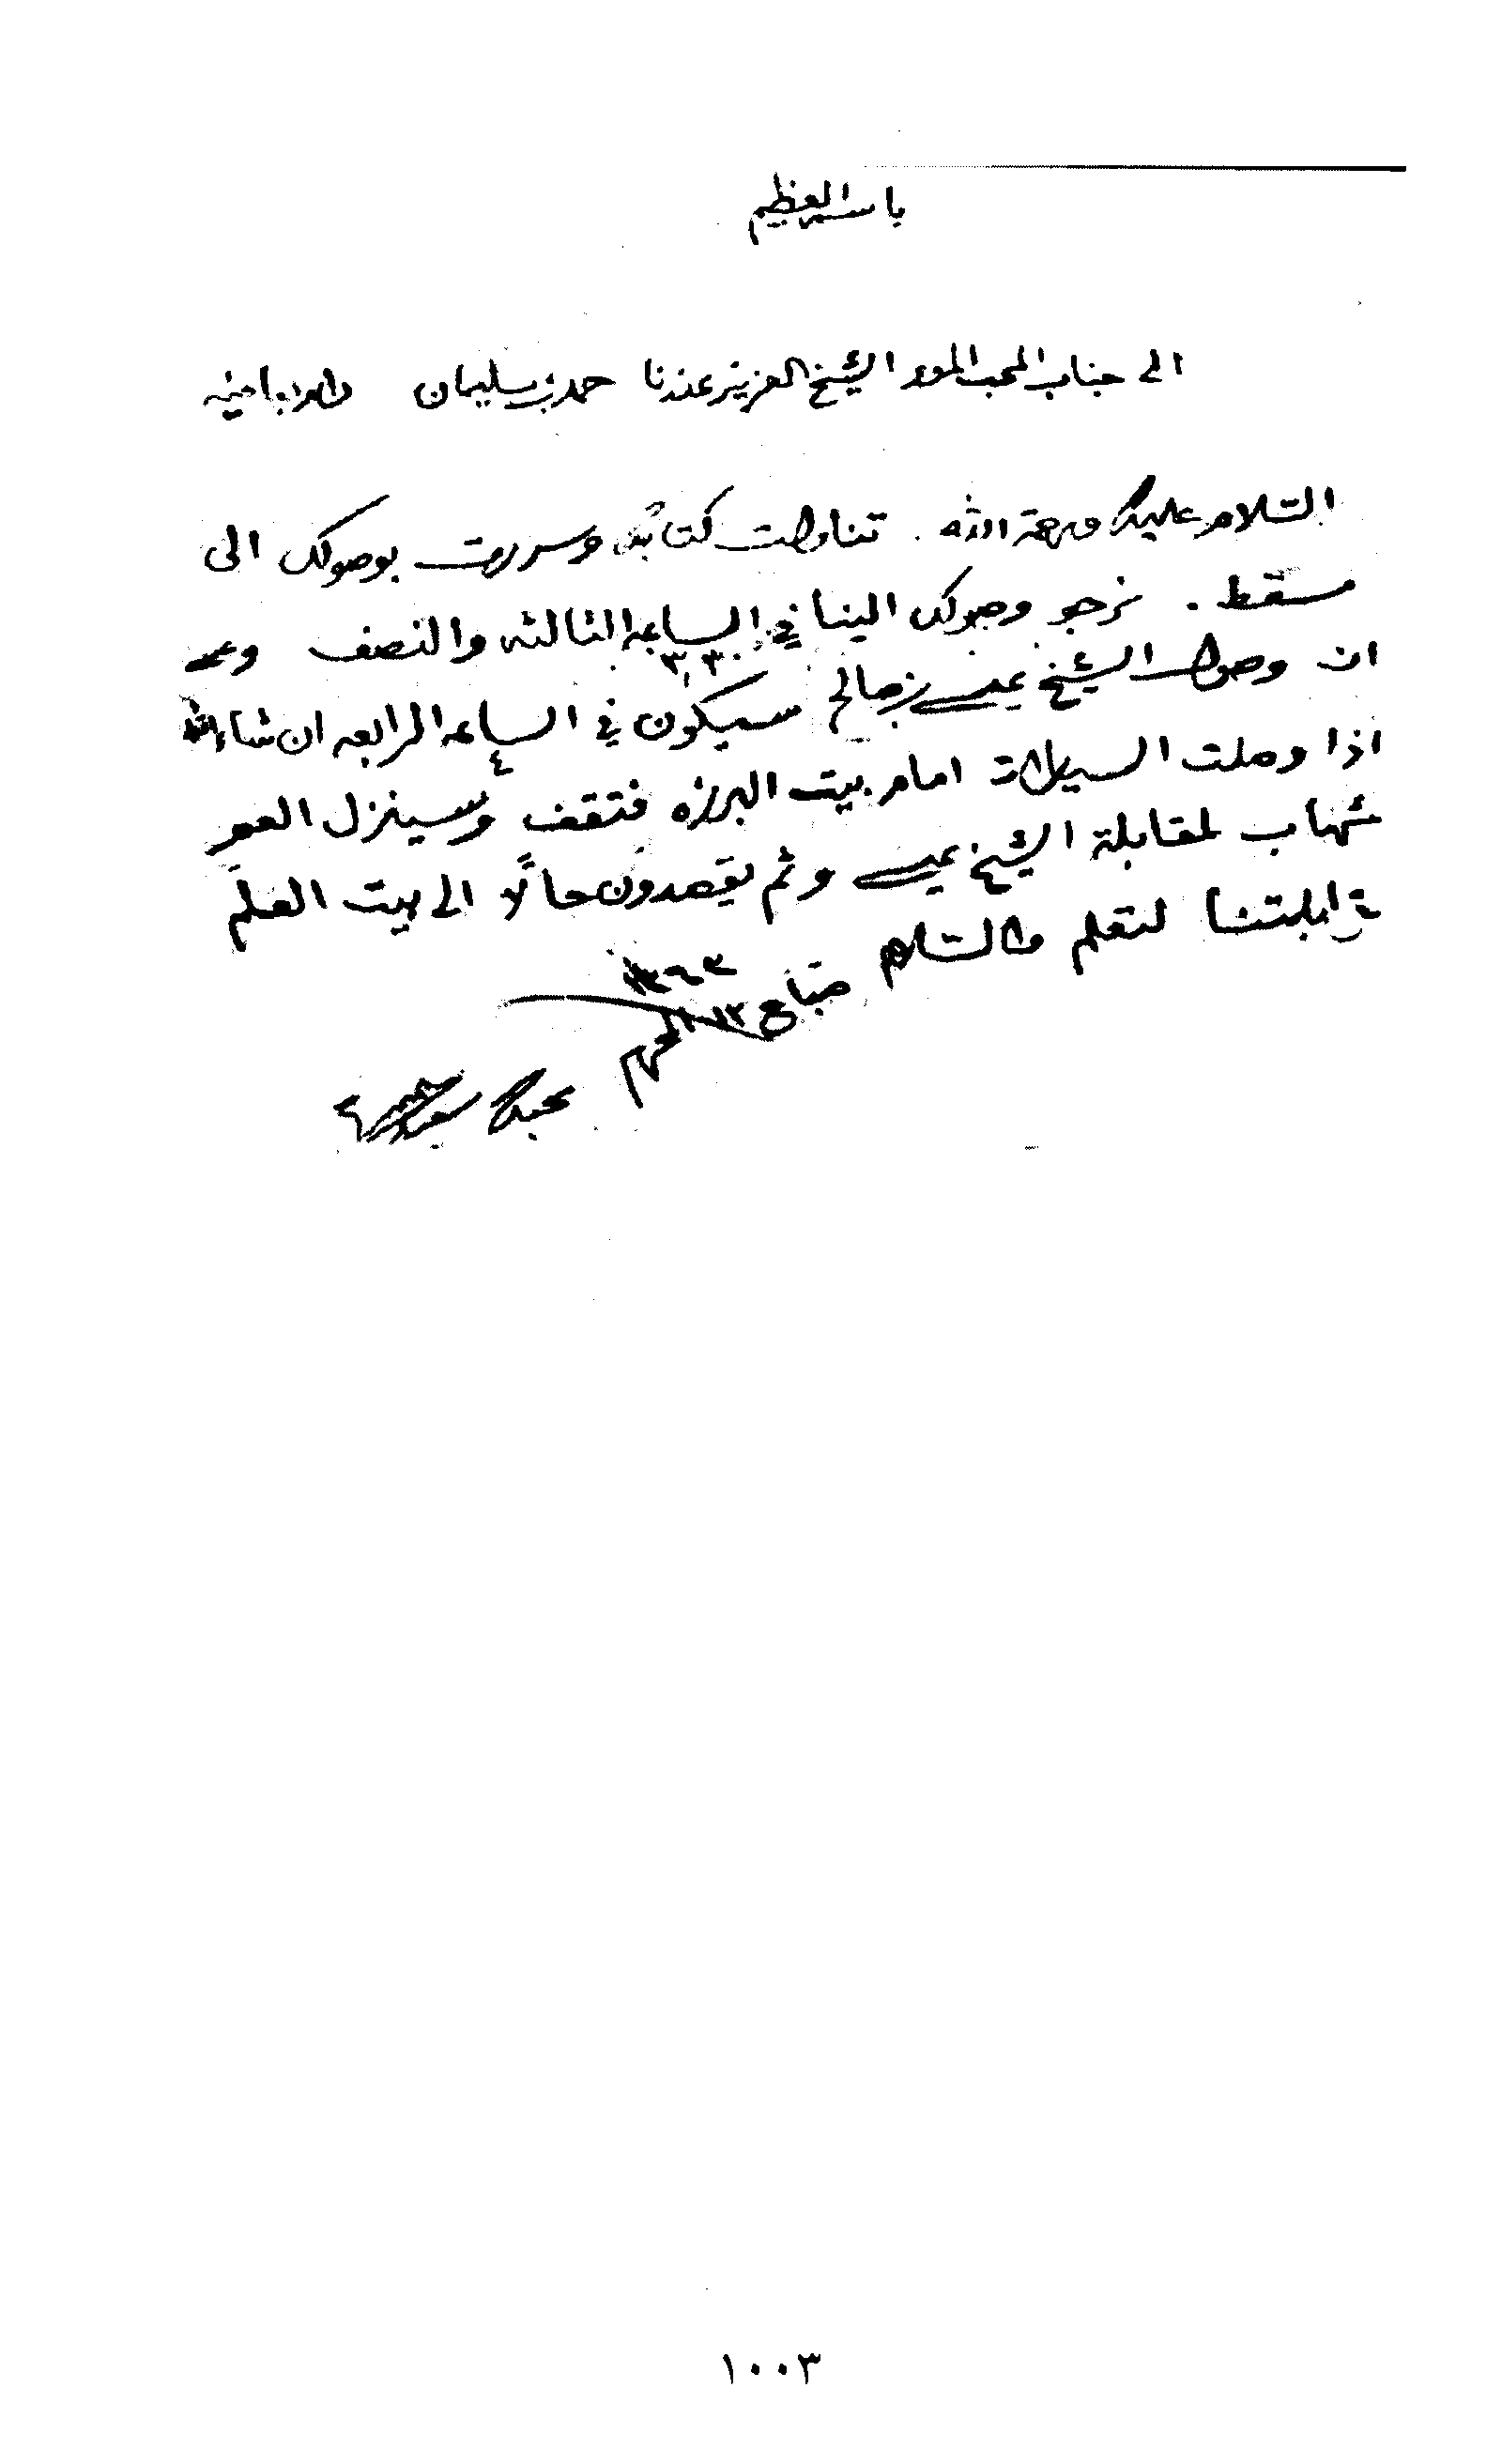 باسمه العظيم
الى جناب المحب المود الشيخ العزيز عندنا حمد بن سليمان دام بعافيه
السلام عليك ورحمة الله . تناولت كتابك وسررت بوصولك الى
مسقط . نرجو وصولك الينا في الساعة الثالثه والنصف وعسى
٣٫٣٠
ان وصول الشيخ عيسى بن صالح سيكون في الساعه الرابعه ان شاء الله
٤
اذا وصلت السيارات امام بيت البرزه فتقف وسينزل العم
شهاب لمقابلة الشيخ عيسى وثم يقصدون حالًا الى بيت العلم
لمقابلتنا لتعلم والسلام صباح ١٢ محرم
١٣٦٣
محبك سعيد
١٠٠٣